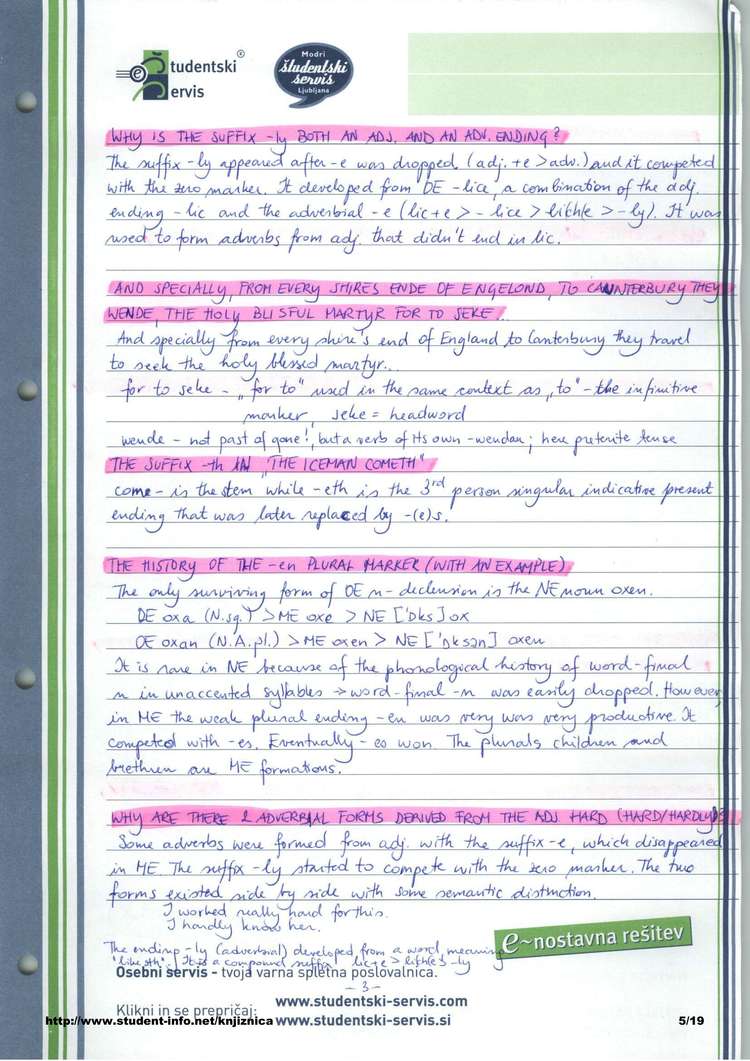 Študentski® Servis
Modri
študentski
servis
Ljubljana
WHY IS THE SUFFIX -ly BOTH AN ADJ. AND AN ADV. ENDING?
The suffix -ly appeared after -e was dropped (adj. +e > adv.) and it competed
with the zero marker. It developed from OE -lice, a combination of the adj.
ending -lic and the adverbial -e (lic+e > -lice > lich(e > -ly). It was
used to form adverbs from adj. that didn't end in lic.
AND SPECIALLY, FROM EVERY SHIRES ENDE OF ENGELOND, TO CAUNTERBURY THEY
WENDE, THE HOLY BLISFUL MARTYR FOR TO SEKE...
And specially from every shire's end of England to Canterbury they travel
to seek the holy blessed martyr...
for to seke - „for to" used in the same context as „to" - the infinitive
marker, seke = headword
wende - not past of gone!, but a verb of its own - wendan; here preterite tense
THE SUFFIX -th IN "THE ICEMAN COMETH"
come - is the stem while -eth is the 3rd person singular indicative present
ending that was later replaced by -(e)s.
THE HISTORY OF THE -en PLURAL MARKER (WITH AN EXAMPLE)
The only surviving form of OE n-declension is the NE noun oxen.
OE oxa (N.sg.) > ME oxe > NE ['ɒks] ox
OE oxan (N.A.pl.) > ME oxen > NE ['ɒksən] oxen
It is rare in NE because of the phonological history of word-final
n in unaccented syllables → word-final -n was easily dropped. However,
in ME the weak plural ending -en was very was very productive. It
competed with -es. Eventually -es won. The plurals children and
brethren are ME formations.
WHY ARE THERE 2 ADVERBIAL FORMS DERIVED FROM THE ADJ. HARD (HARD/HARDLY)?
Some adverbs were formed from adj. with the suffix -e, which disappeared
in ME. The suffix -ly started to compete with the zero marker. The two
forms existed side by side with some semantic distinction.
I worked really hard for this.
I hardly know her.
The ending -ly (adverbial) developed from a word meaning
"like sth". It is a compound suffix lic+e > lich(e > -ly
e~nostavna rešitev
Osebni servis - tvoja varna spletna poslovalnica.
- 3 -
Klikni in se prepričaj: www.studentski-servis.com
http://www.student-info.net/knjiznica www.studentski-servis.si 5/19